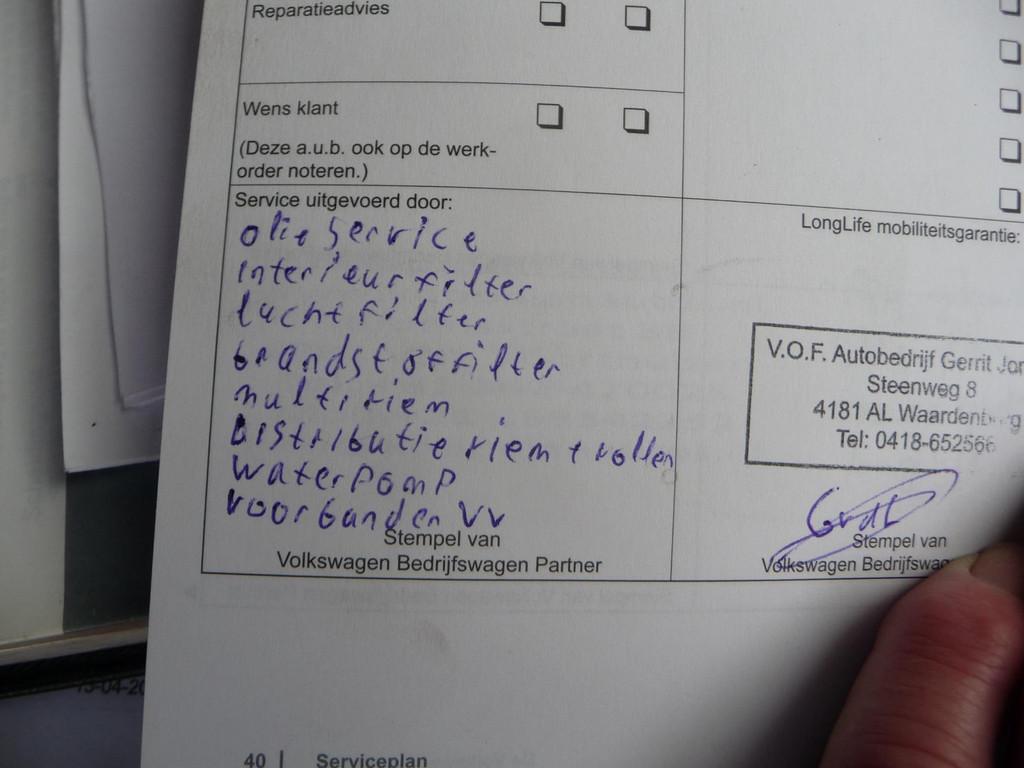 Reparatieadvies
Wens klant
(Deze a.u.b. ook op de werk-
order noteren.)
Service uitgevoerd door:
olie service
interieurfilter
luchtfilter
brandstoffilter
multiriem
Distributie riem + rollen
waterpomp
voorbanden VV
Stempel van
Volkswagen Bedrijfswagen Partner
LongLife mobiliteitsgarantie:
V.O.F. Autobedrijf Gerrit
Steenweg 8
4181 AL Waardenburg
Tel: 0418-652566
Stempel van
Volkswagen Bedrijfswa
40 | Serviceplan